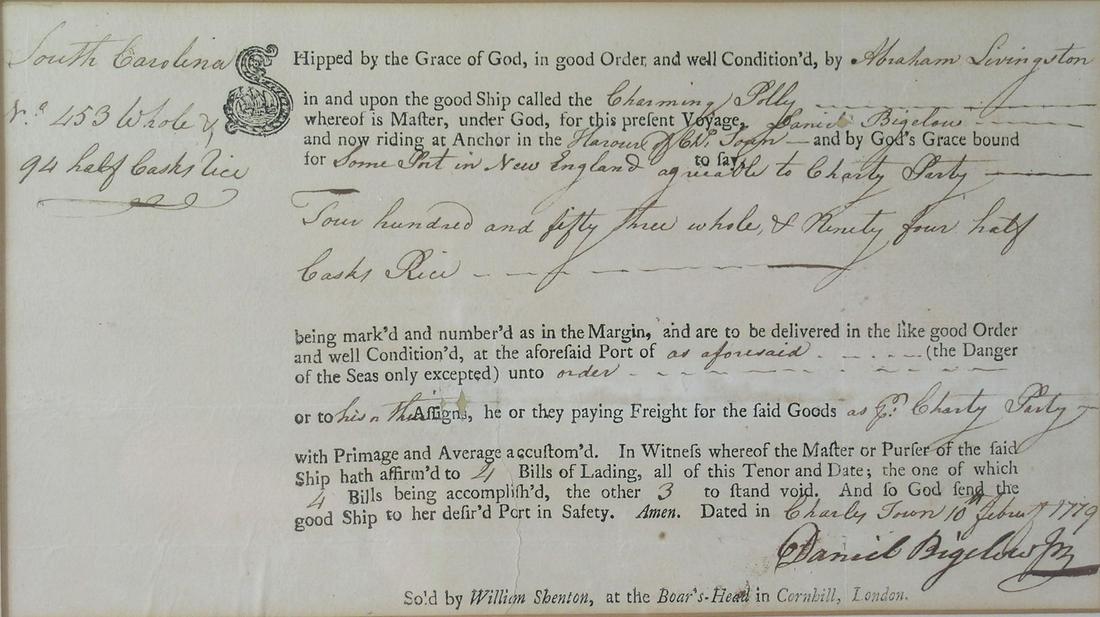 South Carolina
No. 453 Whole &
94 half Casks Rice
SHipped by the Grace of God, in good Order, and well Condition'd, by Abraham Livingston
in and upon the good Ship called the Charming Polly
whereof is Maſter, under God, for this preſent Voyage, Daniel Bigelow
and now riding at Anchor in the Harour of Chs Town — and by God's Grace bound
for Some Port in New England to ſay, agreable to Charty Party
Four hundred and fifty three whole, & Ninety four half
Casks Rice
being mark'd and number'd as in the Margin, and are to be delivered in the like good Order
and well Condition'd, at the aforeſaid Port of as aforesaid (the Danger
of the Seas only excepted) unto order
or to his or their Aſſigns, he or they paying Freight for the ſaid Goods as pr. Charty Party
with Primage and Average accuſtom'd. In Witneſs whereof the Maſter or Purſer of the ſaid
Ship hath affirm'd to 4 Bills of Lading, all of this Tenor and Date; the one of which
4 Bills being accompliſh'd, the other 3 to ſtand void. And ſo God ſend the
good Ship to her deſir'd Port in Safety. Amen. Dated in Charles Town 10th Februy 1779
Daniel Bigelow Jr
Sold by William Shenton, at the Boar's-Head in Cornhill, London.